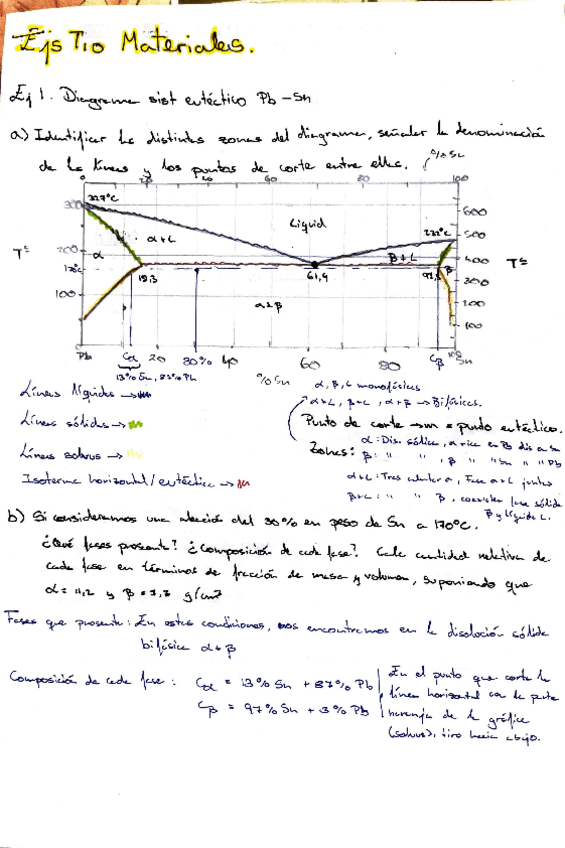 Ejs T10 Materiales.
Ej 1. Diagrama sist eutéctico Pb-Sn
a) Identificar las distintas zonas del diagrama, señalar la denominación
de las líneas y los puntos de corte entre ellas. % Sn
0 20 40 60 80 100
300 327°C
Liquid
232°C
600
500
400
300
200
100
T²
200
α
α+L
β+L
β
T²
100
19,3
61,9
α+β
Pb Cα 20 30% 40 60 80 Cβ Sn
13% Sn, 87% Pb
% Sn
α, β, L monofásicas
Líneas líquidus →
α+L, β+L, α+β → Bifásicas.
Líneas sólidus →
Punto de corte → = punto eutéctico.
Zonas:
Líneas solvus →
Isoterma horizontal/eutéctica →
b) Si consideramos una aleación del 30% en peso de Sn a 170°C.
¿Qué fases presenta? ¿Composición de cada fase? Calc cantidad relativa de
cada fase en términos de fracción de masa y volumen, suponiendo que
α = 11,2 y β = 7,3 g/cm³
Fases que presenta: En estas condiciones, nos encontramos en la disolución sólida
bifásica α+β
Composición de cada fase: Cα = 13% Sn + 87% Pb
Cβ = 97% Sn + 3% Pb
En el punto que corta la
línea horizontal con la parte
naranja de la gráfica
(solvus), tiro hacia abajo.